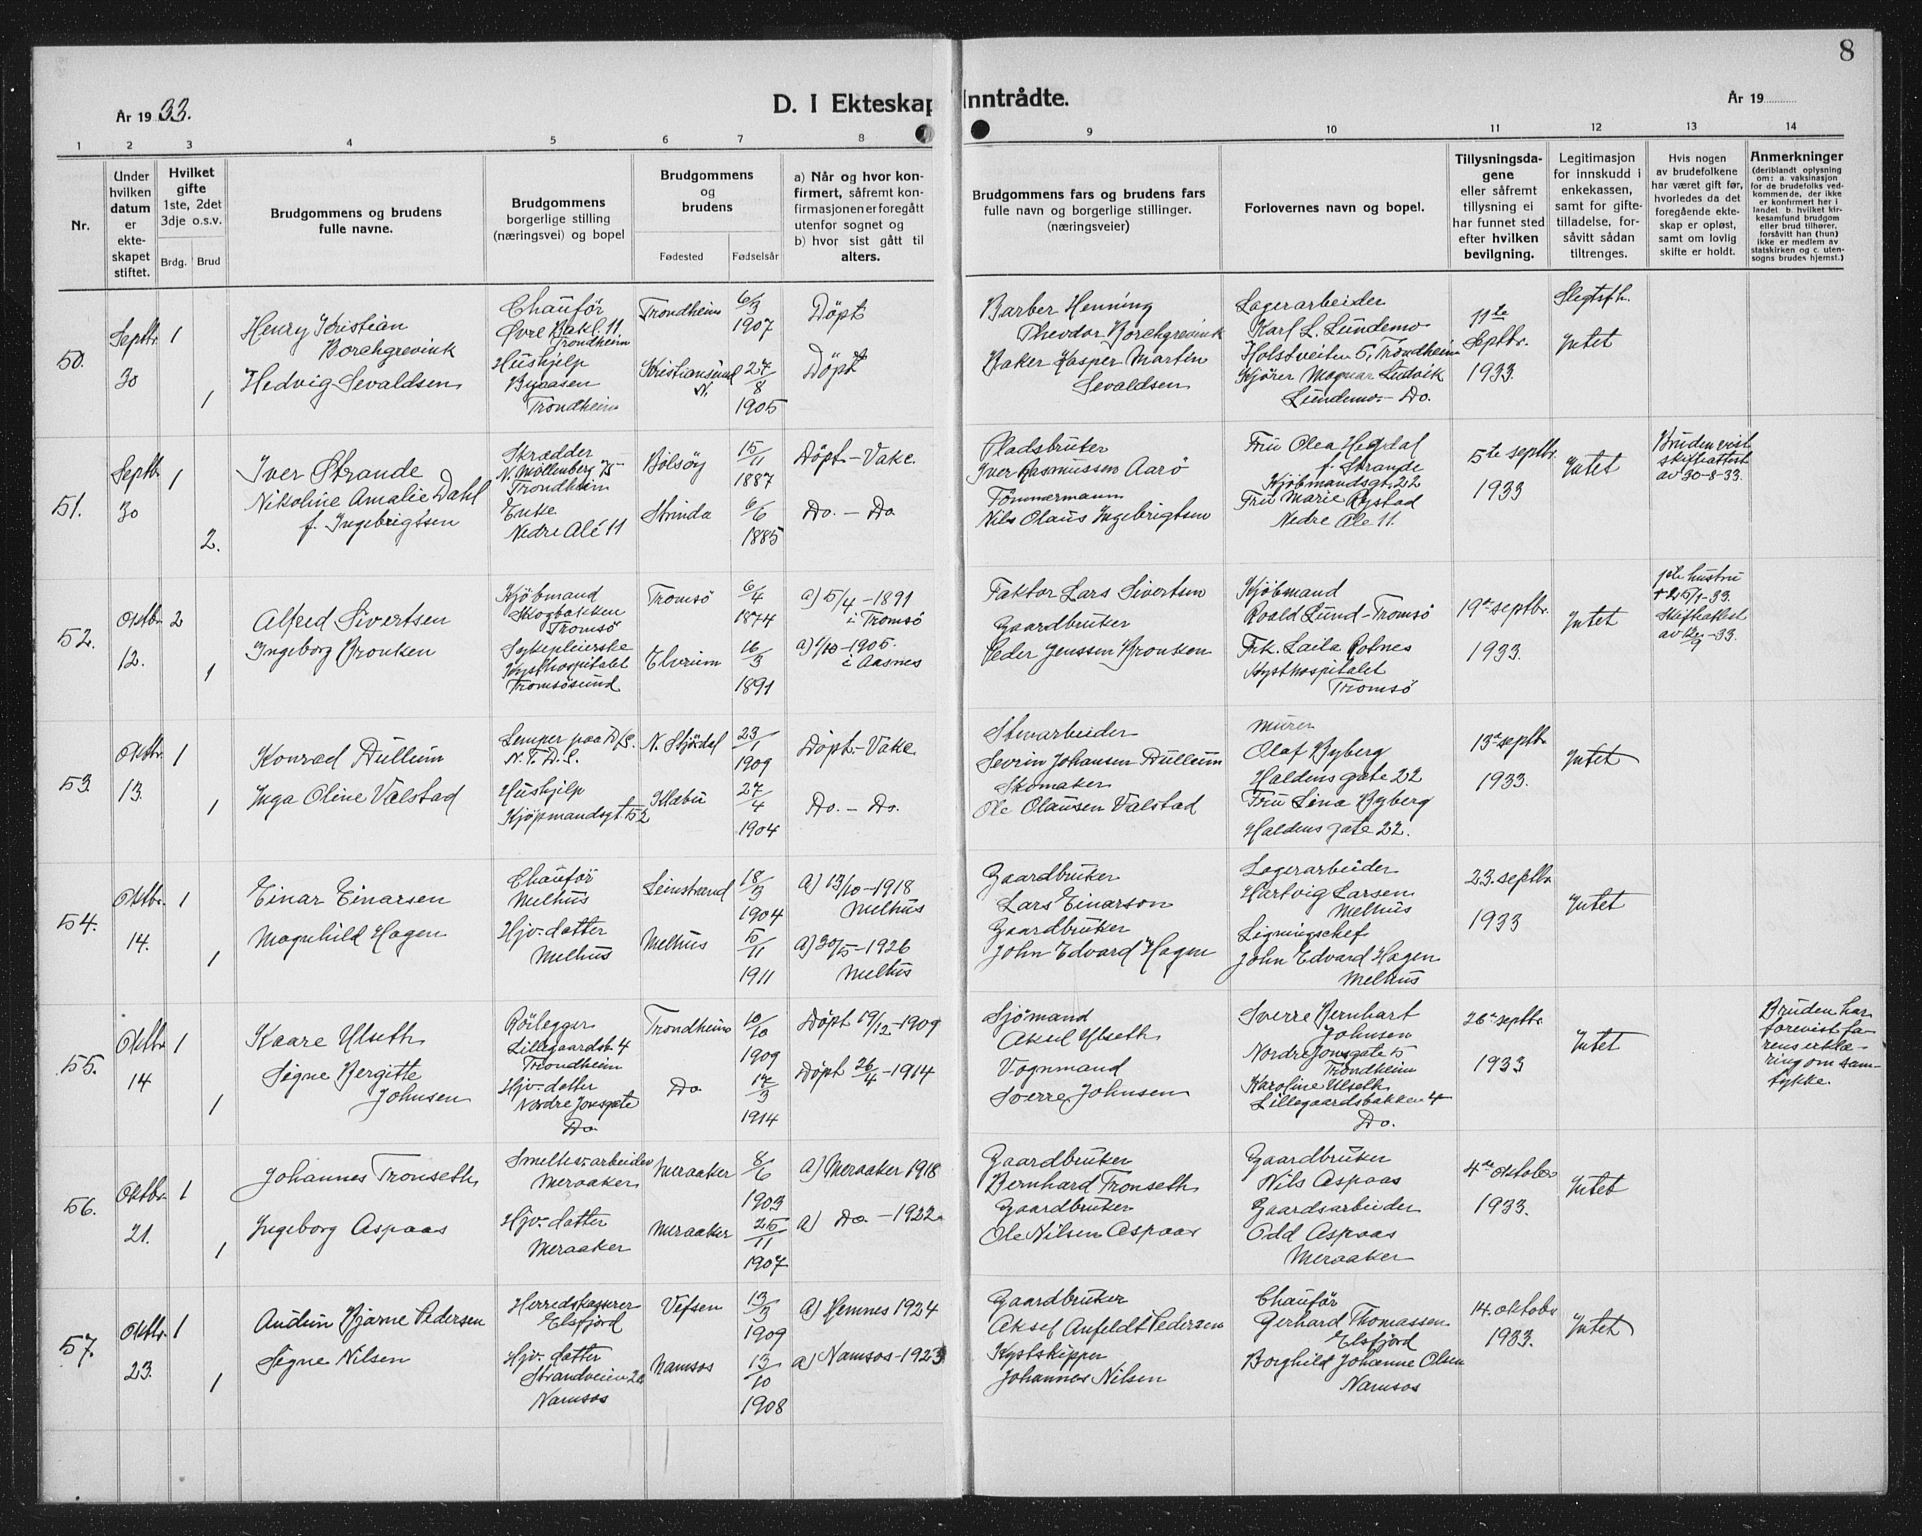 8
År 1933.
D. I Ekteskap Inntrådte.
År 19
1 2 3 4 5 6 7 8 9 10 11 12 13 14
Nr.
Under hvilken datum er ekteskapet stiftet.
Hvilket gifte 1ste, 2det 3dje o.s.v.
Brdg. Brud
Brudgommens og brudens fulle navne.
Brudgommens borgerlige stilling (næringsvei) og bopel
Brudgommens og brudens
Fødested Fødselsår
a) Når og hvor konfirmert, såfremt konfirmasjonen er foregått utenfor sognet og b) hvor sist gått til alters.
Brudgommens fars og brudens fars fulle navn og borgerlige stillinger. (næringsveier)
Forlovernes navn og bopel.
Tillysningsdagene eller såfremt tillysning ei har funnet sted efter hvilken bevilgning.
Legitimasjon for innskudd i enkekassen, samt for giftetilladelse, forsåvitt sådan tiltrenges.
Hvis nogen av brudefolkene har været gift før, hvorledes da det foregående ekteskap er opløst, samt om lovlig skifte er holdt.
Anmerkninger (deriblandt oplysning om: a. vaksinasjon for de brudefolks vedkommende, der ikke er konfirmert her i landet. b. hvilket kirkesamfund brudgom eller brud tilhører, forsåvitt han (hun) ikke er medlem av statskirken og c. utensogns brudes hjemst.)
50.
Septbr. 30
1
1
Henry Kristian
Borchgrevink
Hedvig Sevaldsen
Chauför
Øvre Bakl. 11
Trondheim
Hushjelp
Byaasen
Trondheim
Trondheim
6/3 1907
Kristiansund N.
27/8 1905
Döpt
Döpt
Barber Henning
Theodor Borchgrevink
Baker Kasper Martin
Sevaldsen
Lagerarbeider
Karl L. Lundemo
Holstveiten 5, Trondheim
Kjörer Magnar Ludvik
Lundemo - Do.
11te Septbr. 1933.
Slegtsfh.
Intet
51.
Septbr. 30
1
2.
Iver Strande
Nikoline Amalie Dahl
f. Ingebrigtsen
Skrædder
N. Möllenberg 75
Trondheim
Enke
Nedre Alé 11
Bolsöy
15/11 1887
Strinda
6/6 1885
Döpt - Vakc.
Do. - Do
Pladsbruker
Iver Rasmussen Aarö
Tömmermann
Nils Olaus Ingebrigtsen
Fru Olea Hegdal
f. Strande
Kjöbmandsgt. 22
Fru Marie Rystad
Nedre Ale 11.
5te septbr. 1933
Intet
Bruden vist
skifteattest
av 30-8-33.
52.
Oktbr. 12.
2
1
Alfred Sivertsen
Ingeborg Bronken
Kjöbmand
Skogbakken
Tromsö
Sykepleierske
Kysthospitalet
Tromsösund
Tromsö
6/4 1874
Elverum
16/3 1891
a) 5/4 - 1891
i Tromsö
a) 1/10 - 1905.
i Aasnes
Faktor Lars Sivertsen
Gaardbruker
Peder Jenssen Bronken
Kjöbmand
Roald Lund - Tromsö
Frk. Laila Robnes
Kysthospitalet
Tromsö
19de septbr. 1933.
Intet
1ste hustru
Skifteattest
53.
Oktbr. 13.
1
1
Konrad Dullum
Inga Oline Valstad
Lemper paa D/S.
N. T. D. S.
Hushjelp
Kjöpmandsgt 52
N. Stjördal
23/1 1909
Klæbu
27/4 1904
Döpt - Vakc
Do. - Do.
Stenarbeider
Sevrin Johansen Dullum
Skomaker
Ole Olausen Valstad
Murer
Olaf Byberg
Haldens gate 22
Fru Lina Byberg
Haldens gate 22.
13de septbr. 1933.
Intet
54.
Oktbr. 14.
1
1
Einar Einarsen
Magnhild Hagen
Chauför
Melhus
Hjv. datter
Melhus
Leinstrand
18/3 1904
Melhus
5/11 1911
a) 13/10 - 1918
Melhus
a) 30/5 - 1926
Melhus
Gaardbruker
Lars Einarson
Gaardbruker
John Edvard Hagen
Lagerarbeider
Hartvig Larsen
Melhus
Ligningschef
John Edvard Hagen
Melhus
23. septbr. 1933
Intet
55.
Oktbr. 14
1
1
Kaare Ulseth
Signe Bergitte
Johnsen
Rörlegger
Lillegaardsb. 4
Trondheim
Hjv. datter
Nordre Jonsgate
Do
Trondheim
10/10 1909
Do
17/3 1914
Döpt 19/12 - 1909
Döpt 26/4 - 1914
Sjömand
Aksel Ulseth
Vognmand
Sverre Johnsen
Sverre Bernhart
Johnsen
Nordre Jonsgate 5
Trondheim
Karoline Ulseth
Lillegaardsbakken 4
Do.
26de septbr. 1933
Intet
Bruden har
forevist fa-
rens erklæ-
ring om sam-
tykke.
56.
Oktbr. 21.
1
1
Johannes Tronseth
Ingeborg Aspaas
Smelte-arbeider
Meraaker
Hjv. datter
Meraaker
Meraaker
8/6 1903
Meraaker
25/11 1907
a) Meraaker 1918
a) Do - 1922
Gaardbruker
Bernhard Tronseth
Gaardbruker
Ole Nilsen Aspaas
Gaardbruker
Nils Aspaas
Gaardsarbeider
Odd Aspaas
Meraaker
4de oktober 1933.
Intet
57.
Oktbr. 23.
1
1
Audun Bjarne Pedersen
Signe Nilsen
Herredskasserer
Elsfjord
Hjv. datter
Strandveien
Namsos
Vefsen
13/3 1909
Namsos
13/10 1908
a) Hemnes 1924
a) Namsos - 1923
Gaardbruker
Aksel Anfeldt Pedersen
Kystskipper
Johannes Nilsen
Chauför
Gerhard Thomassen
Elsfjord
Borghild Johanne Olsen
Namsos
14. oktobr. 1933.
Intet